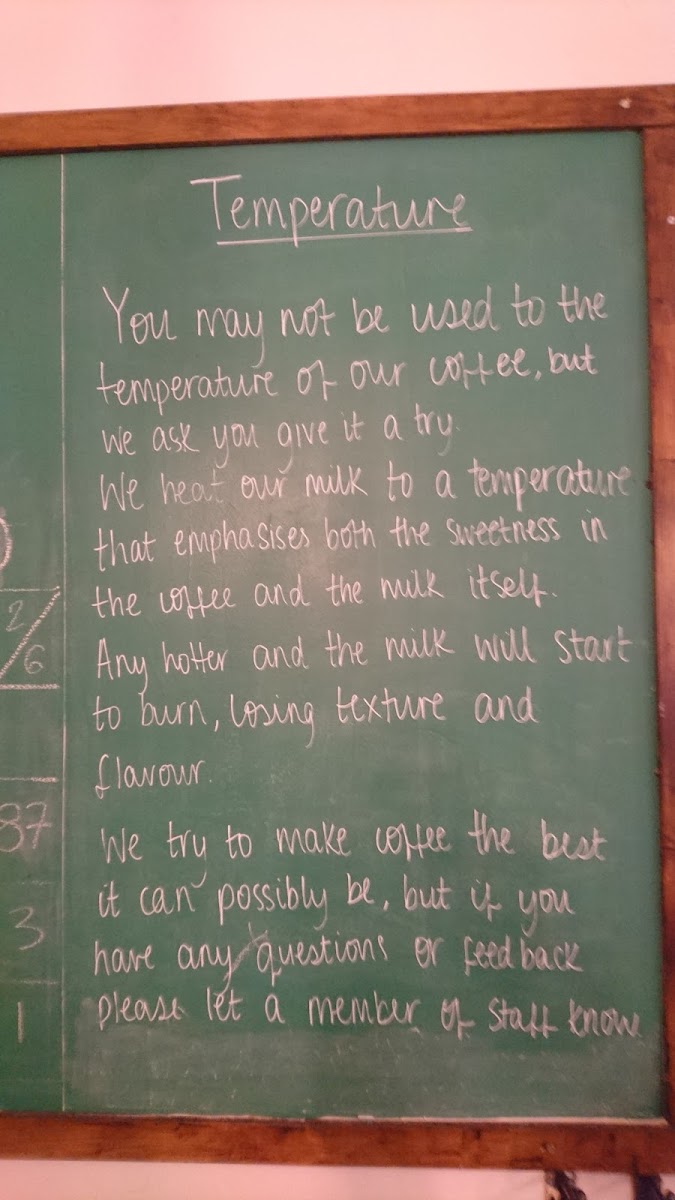 Temperature
You may not be used to the
temperature of our coffee, but
we ask you give it a try.
We heat our milk to a temperature
that emphasises both the sweetness in
the coffee and the milk itself.
Any hotter and the milk will start
to burn, losing texture and
flavour.
We try to make coffee the best
it can possibly be, but if you
have any questions or feedback
please let a member of staff know
2/6
87
3
1